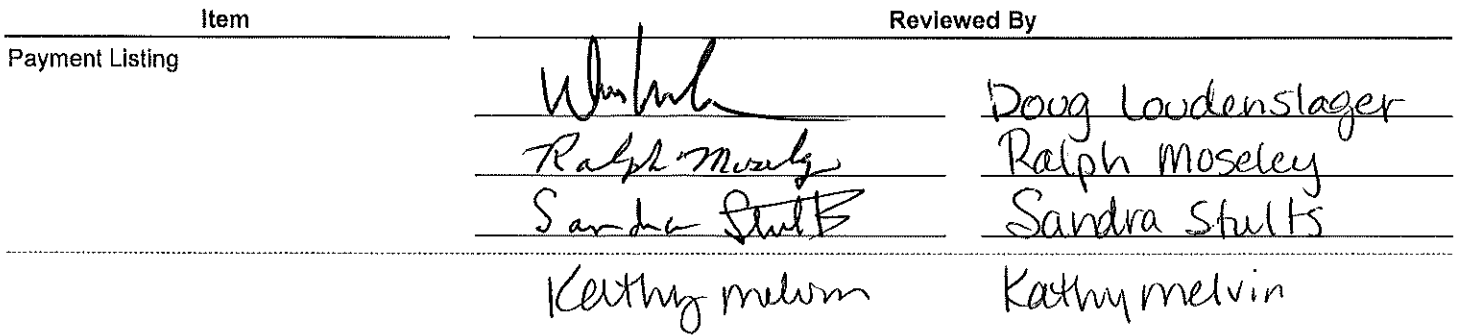 Item Reviewed By
Payment Listing
Doug Loudenslager
Ralph Moseley Ralph Moseley
Sandra Stults Sandra Stults
Kathy melvin Kathy melvin